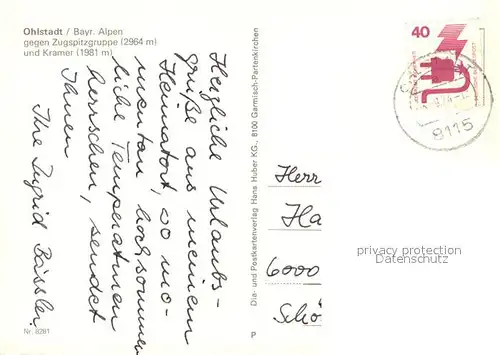 Ohlstadt / Bayr. Alpen
gegen Zugspitzgruppe (2964 m)
und Kramer (1981 m)
Herzliche Urlaubs-
grüße aus meinem
Heimatort, wo mo-
mentan hochsommer
liche Temperaturen
herrschen, sendet
Ihnen
Ihre Ingrid Bässler.
Nr. 8281
Dia- und Postkartenverlag Hans Huber KG., 8100 Garmisch-Partenkirchen
P
40
8115
Herr
Ha
6000
Schö
privacy protection
Datenschutz